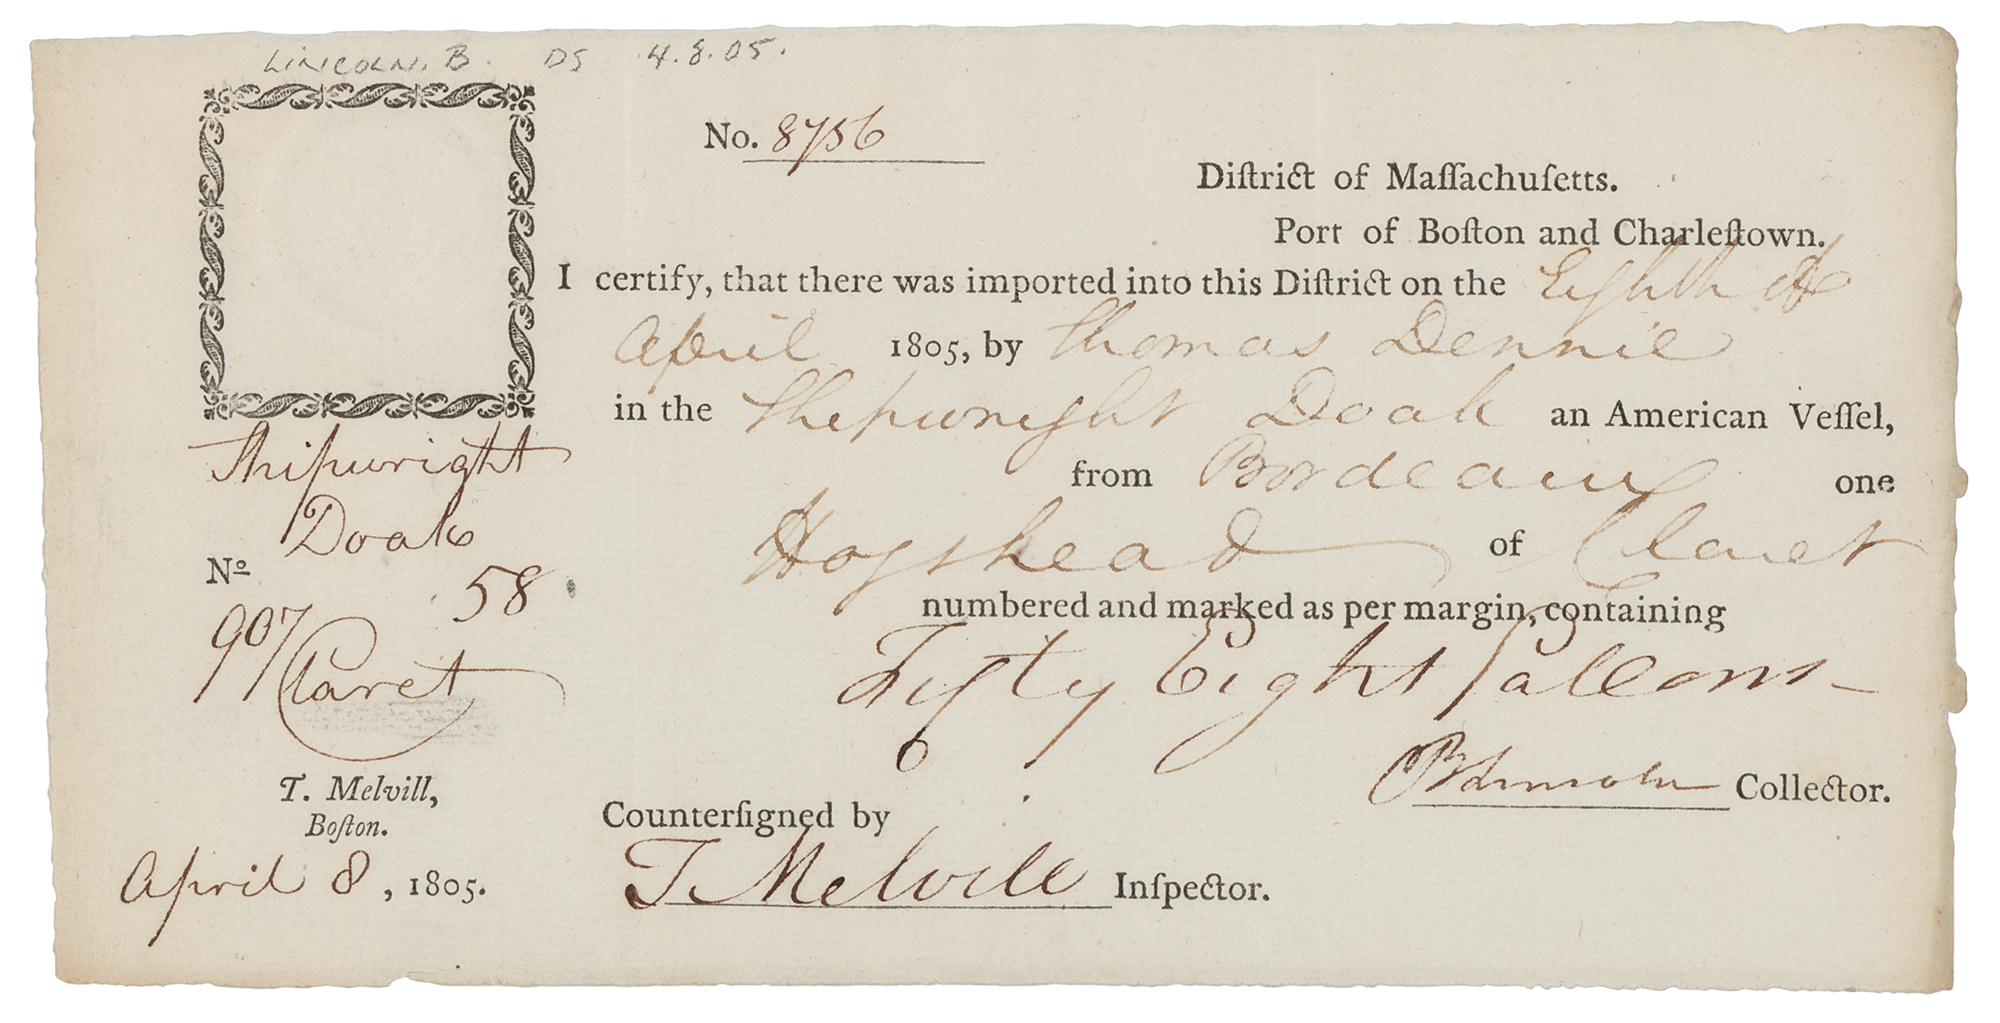 LINCOLN. B. DS 4.8.05.
No. 8756
Diſtrict of Maſſachuſetts.
Port of Boſton and Charleſtown.
I certify, that there was imported into this Diſtrict on the Eighth of
April 1805, by Thomas Dennie
in the Shipwright Doak an American Veſſel,
from Bordeaux one
Hogshead of Claret
numbered and marked as per margin, containing
Fifty Eight Gallons
BLincoln Collector.
Counterſigned by
T Melvill Inſpector.
Shipwright
Doak
No
58
907
Claret
T. Melvill,
Boſton.
April 8, 1805.